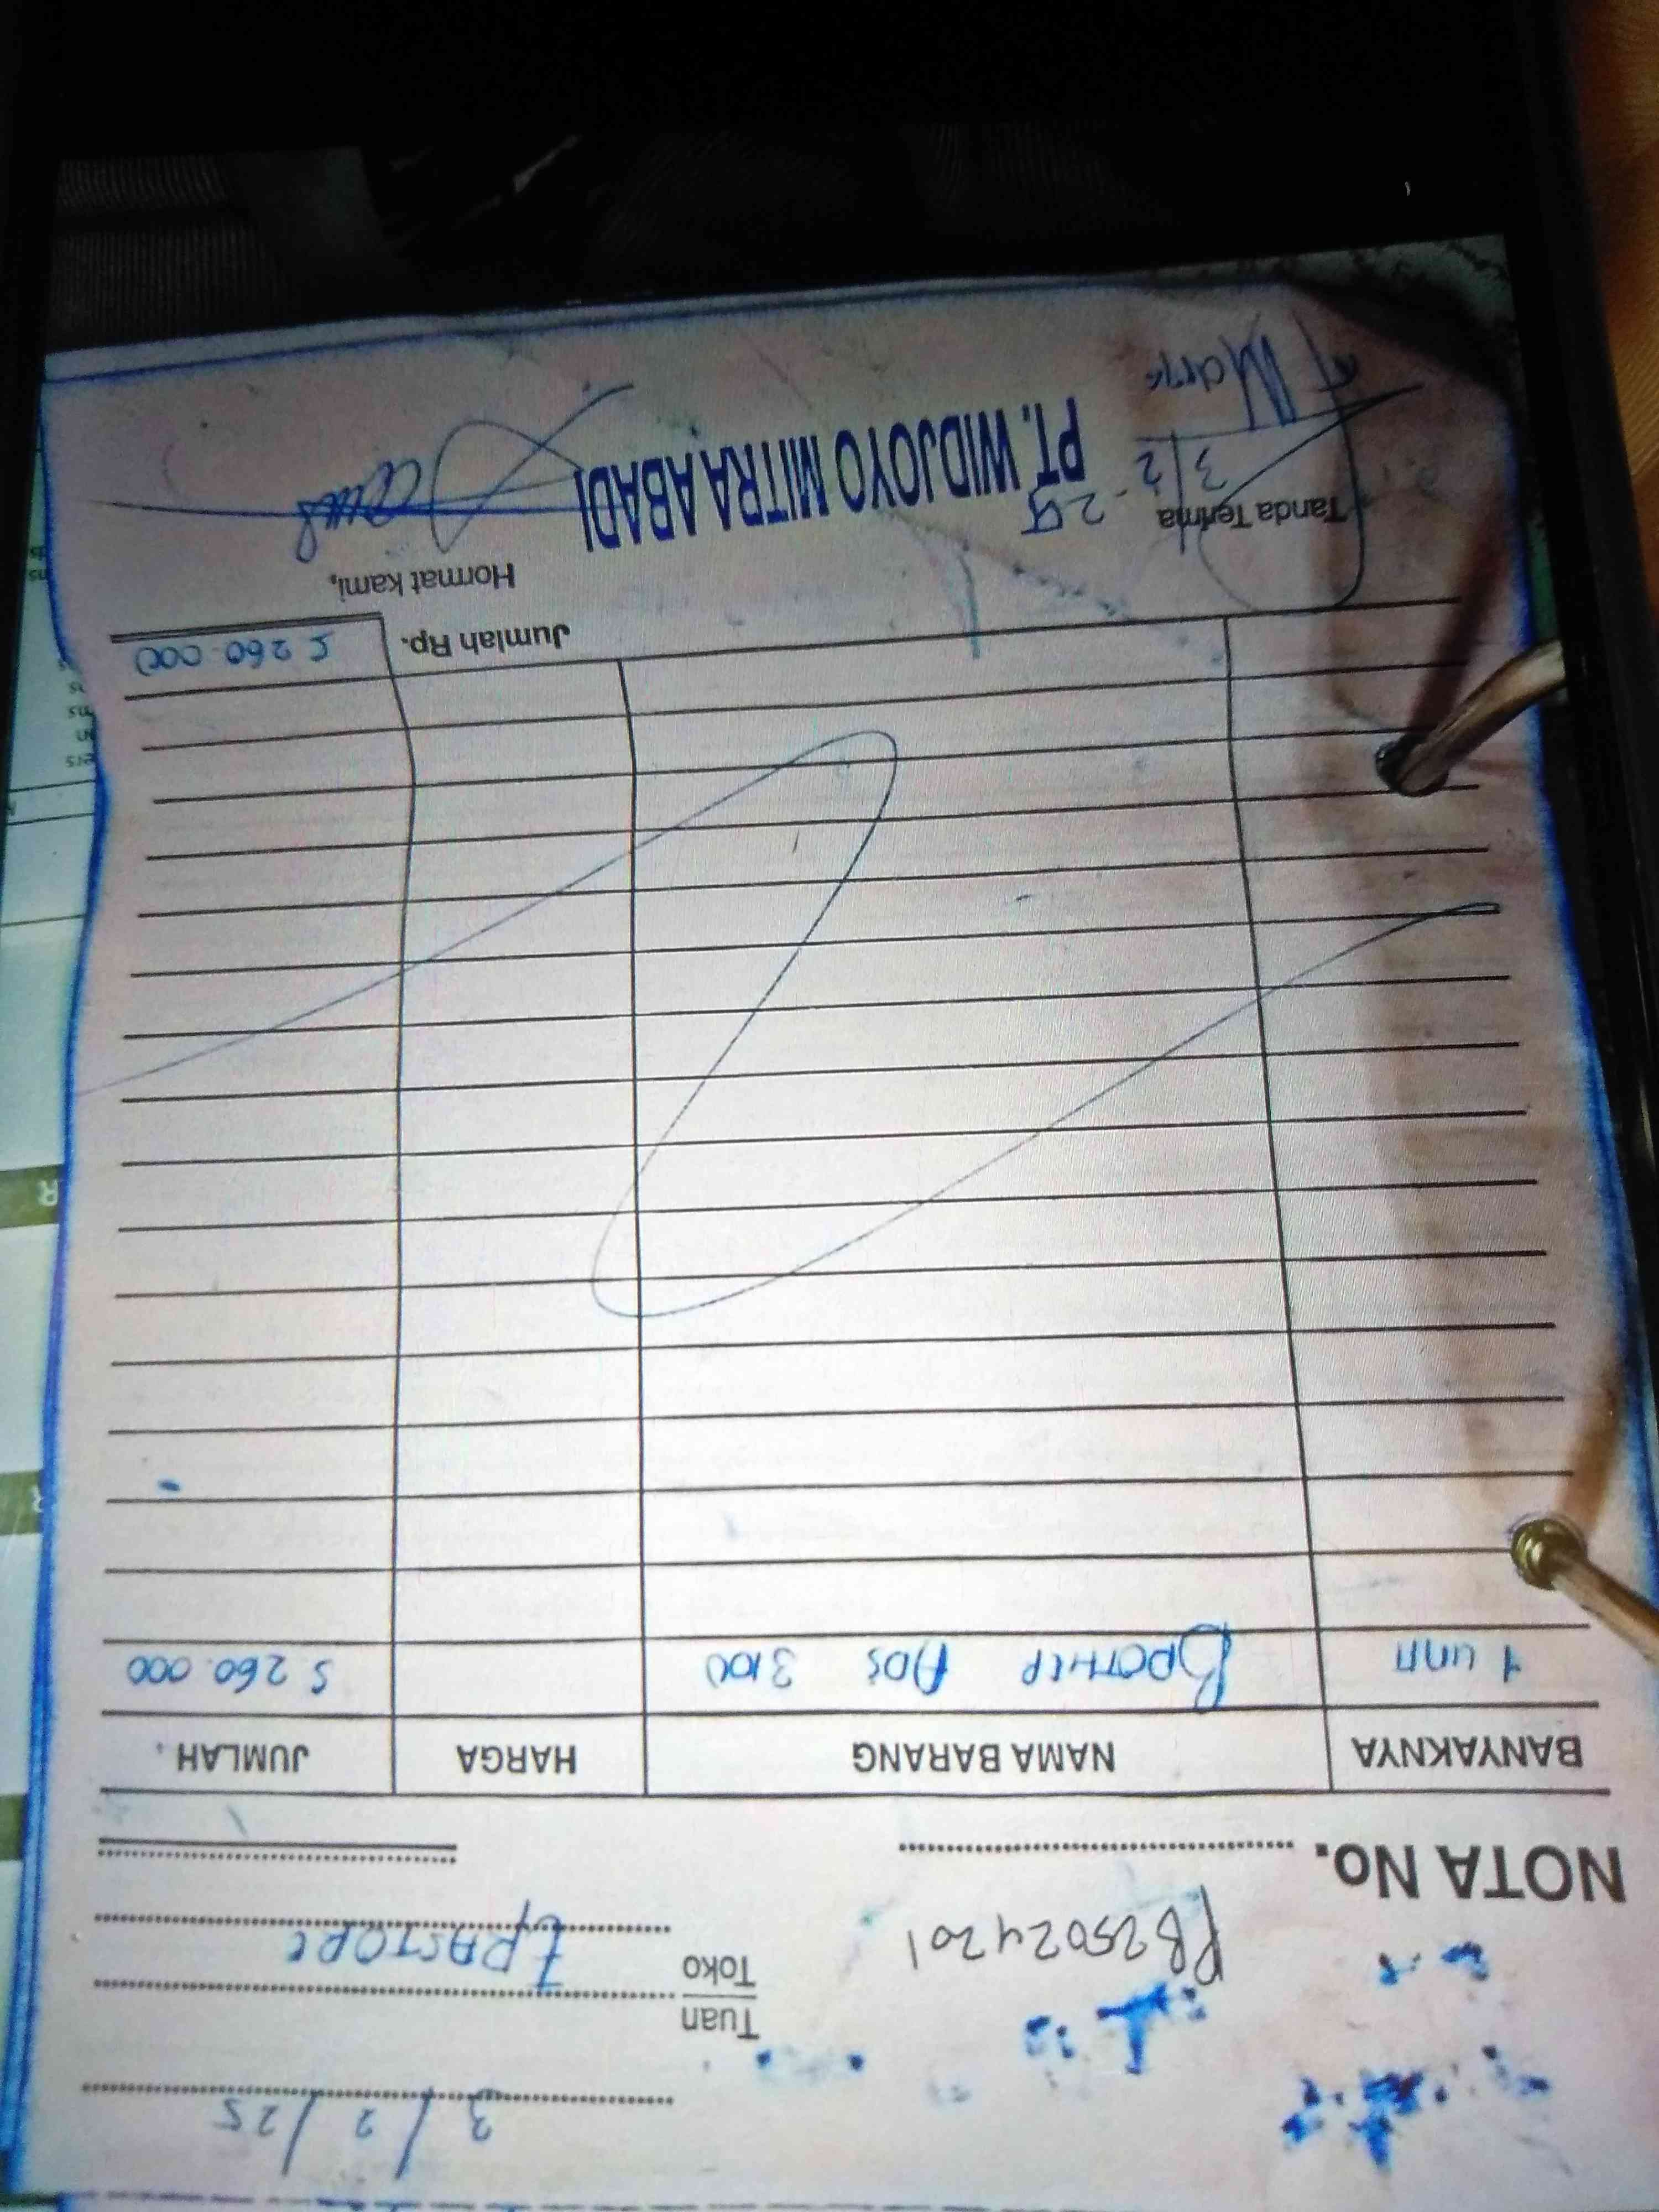 3/2/25
Tuan
Toko
Erastore
PB25024201
NOTA No.
BANYAKNYA NAMA BARANG HARGA JUMLAH
1 unit Brother ADS 3100 5.260.000
Jumlah Rp. 5.260.000
Tanda Terima Hormat kami,
3/2-25
PT. WIDJOYO MITRA ABADI